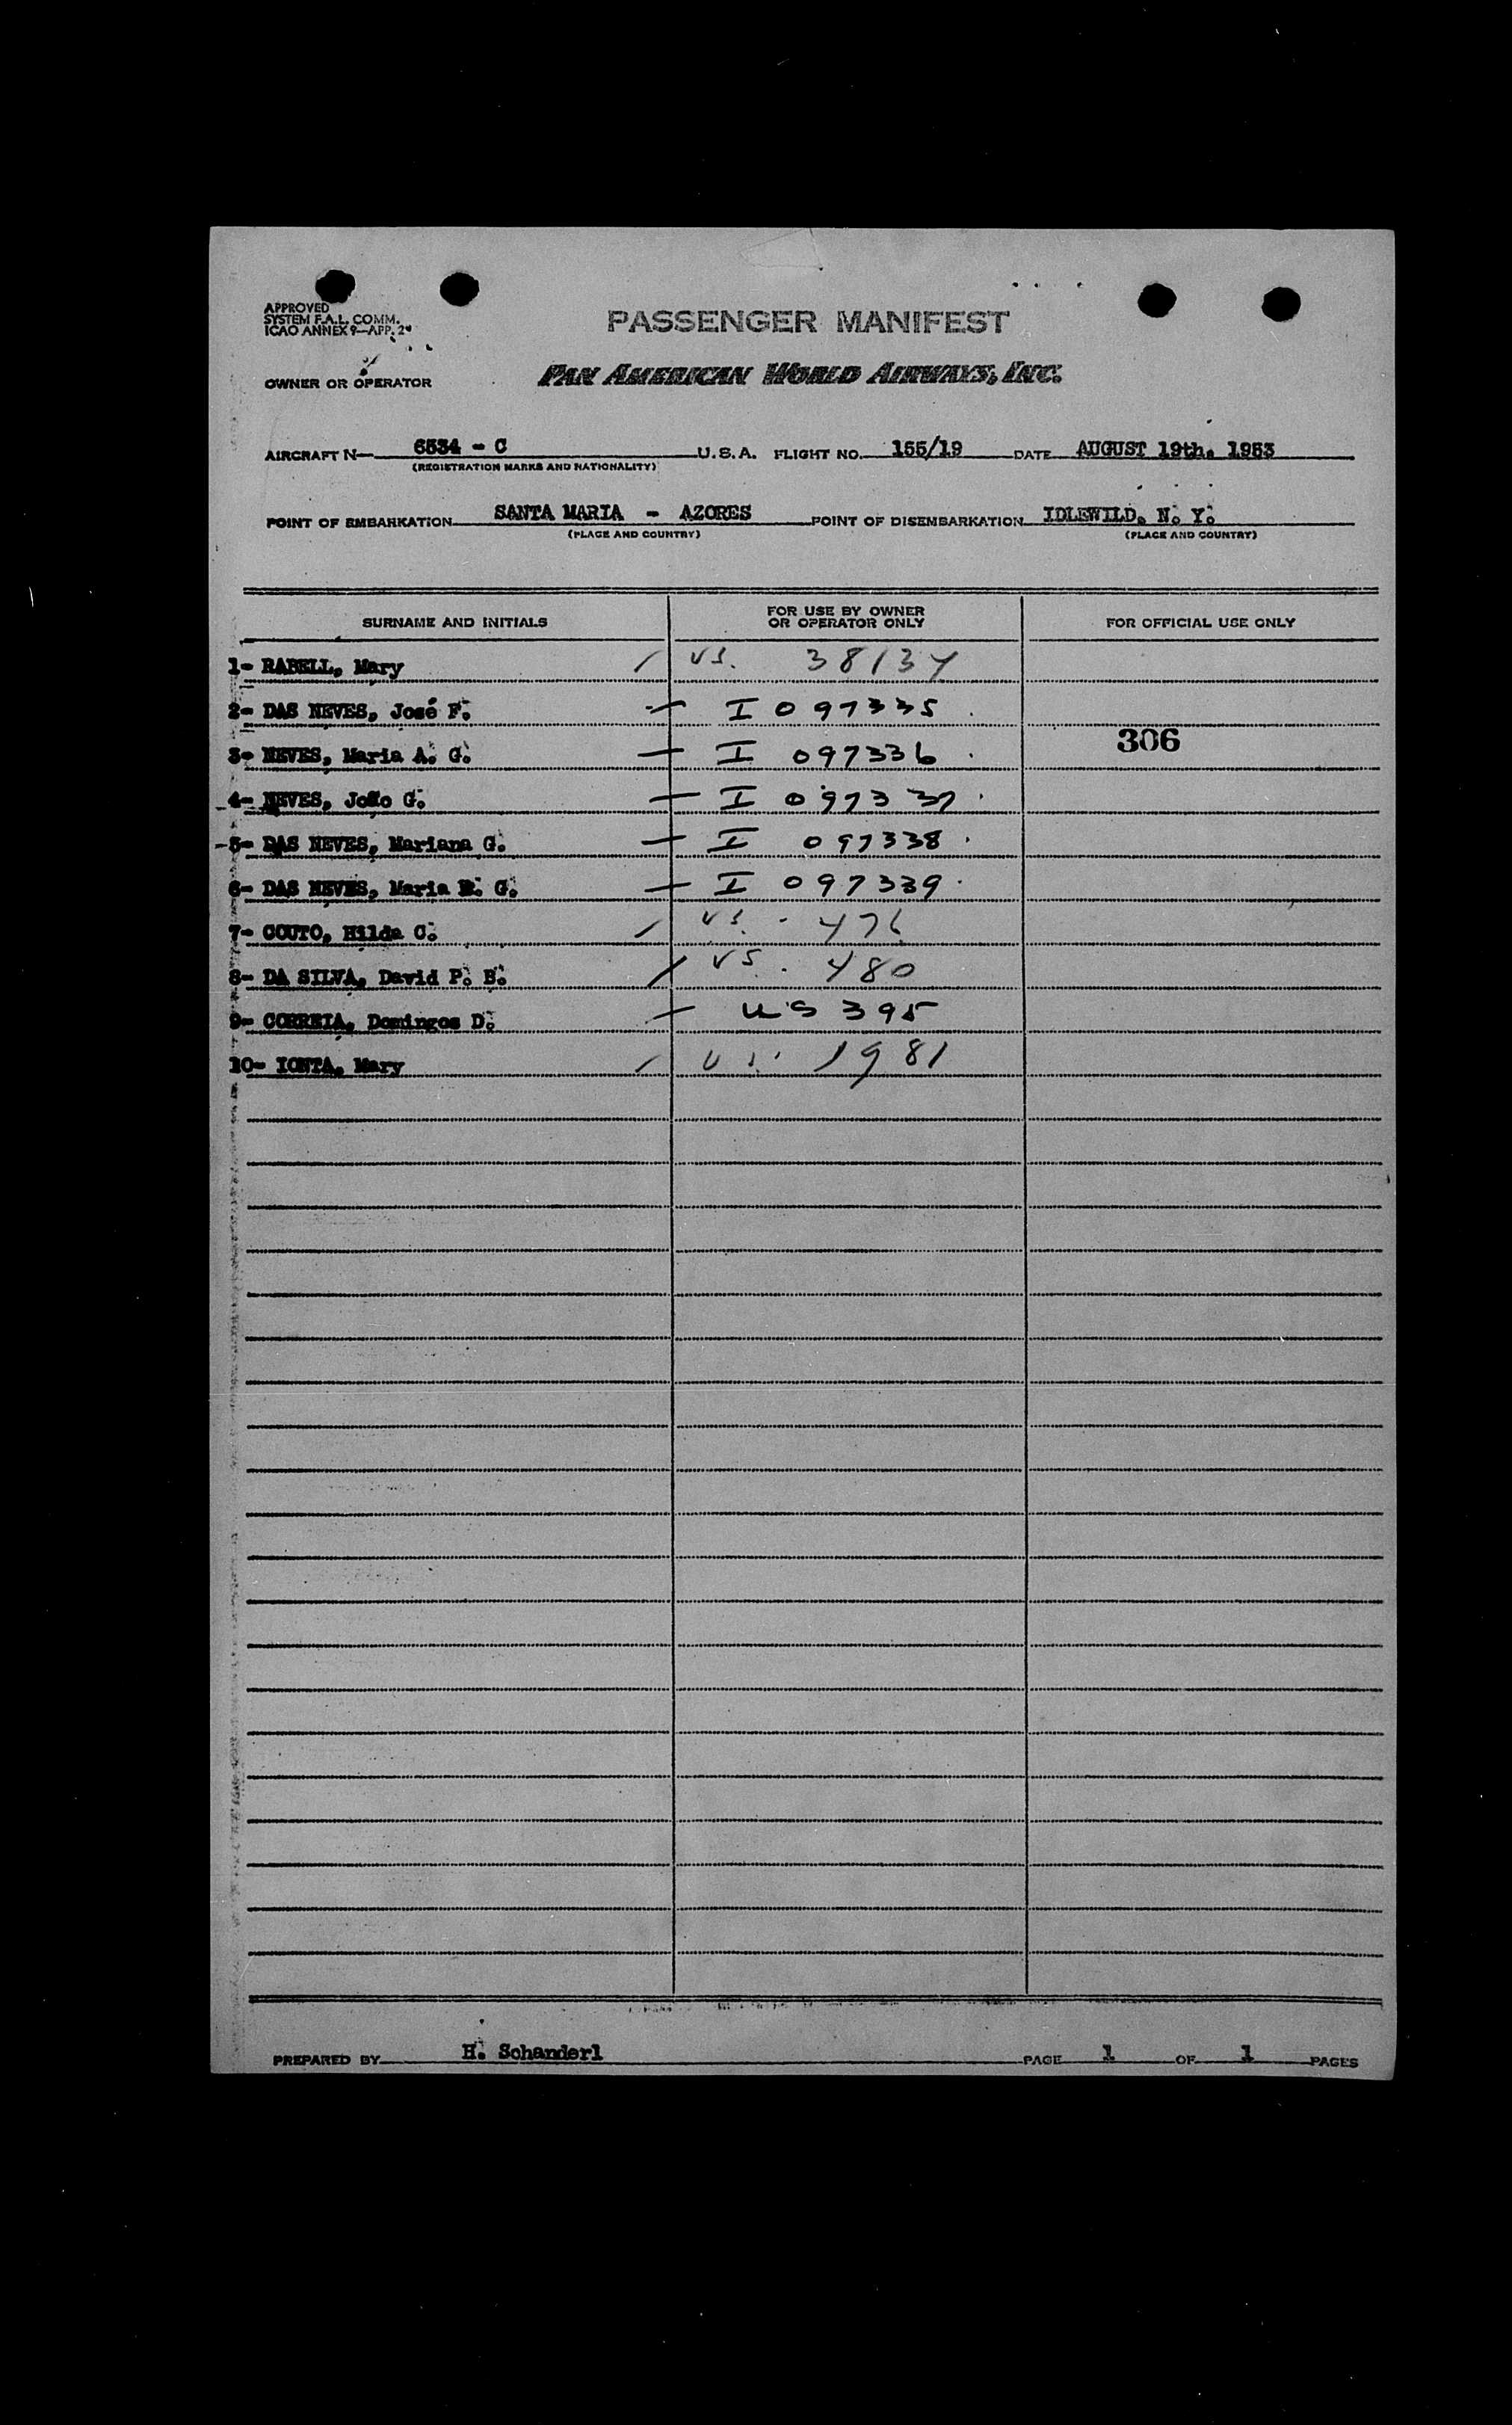 APPROVED
SYSTEM F.A.L. COMM.
ICAO ANNEX 9—APP. 2
PASSENGER MANIFEST
OWNER OR OPERATOR PAN AMERICAN WORLD AIRWAYS, INC.
AIRCRAFT N— 6534 - C U.S.A. FLIGHT NO. 155/19 DATE AUGUST 19th. 1953
(REGISTRATION MARKS AND NATIONALITY)
POINT OF EMBARKATION SANTA MARIA - AZORES POINT OF DISEMBARKATION IDLEWILD. N. Y.
(PLACE AND COUNTRY) (PLACE AND COUNTRY)
SURNAME AND INITIALS FOR USE BY OWNER OR OPERATOR ONLY FOR OFFICIAL USE ONLY
1- RABELL, Mary / VS. 38134
2- DAS NEVES, José F. — I 097335
306
3- NEVES, Maria A. G. — I 097336
4- NEVES, João G. — I 097337
5- DAS NEVES, Mariana G. — I 097338
6- DAS NEVES, Maria G. — I 097339
7- COUTO, Hilda C. / VS. - 476
8- DA SILVA, David P. B. / VS. 480
9- CORREIA, Domingos D. — US 395
10- IONTA, Mary / US. 1981
PREPARED BY H. Schanderl PAGE 1 OF 1 PAGES